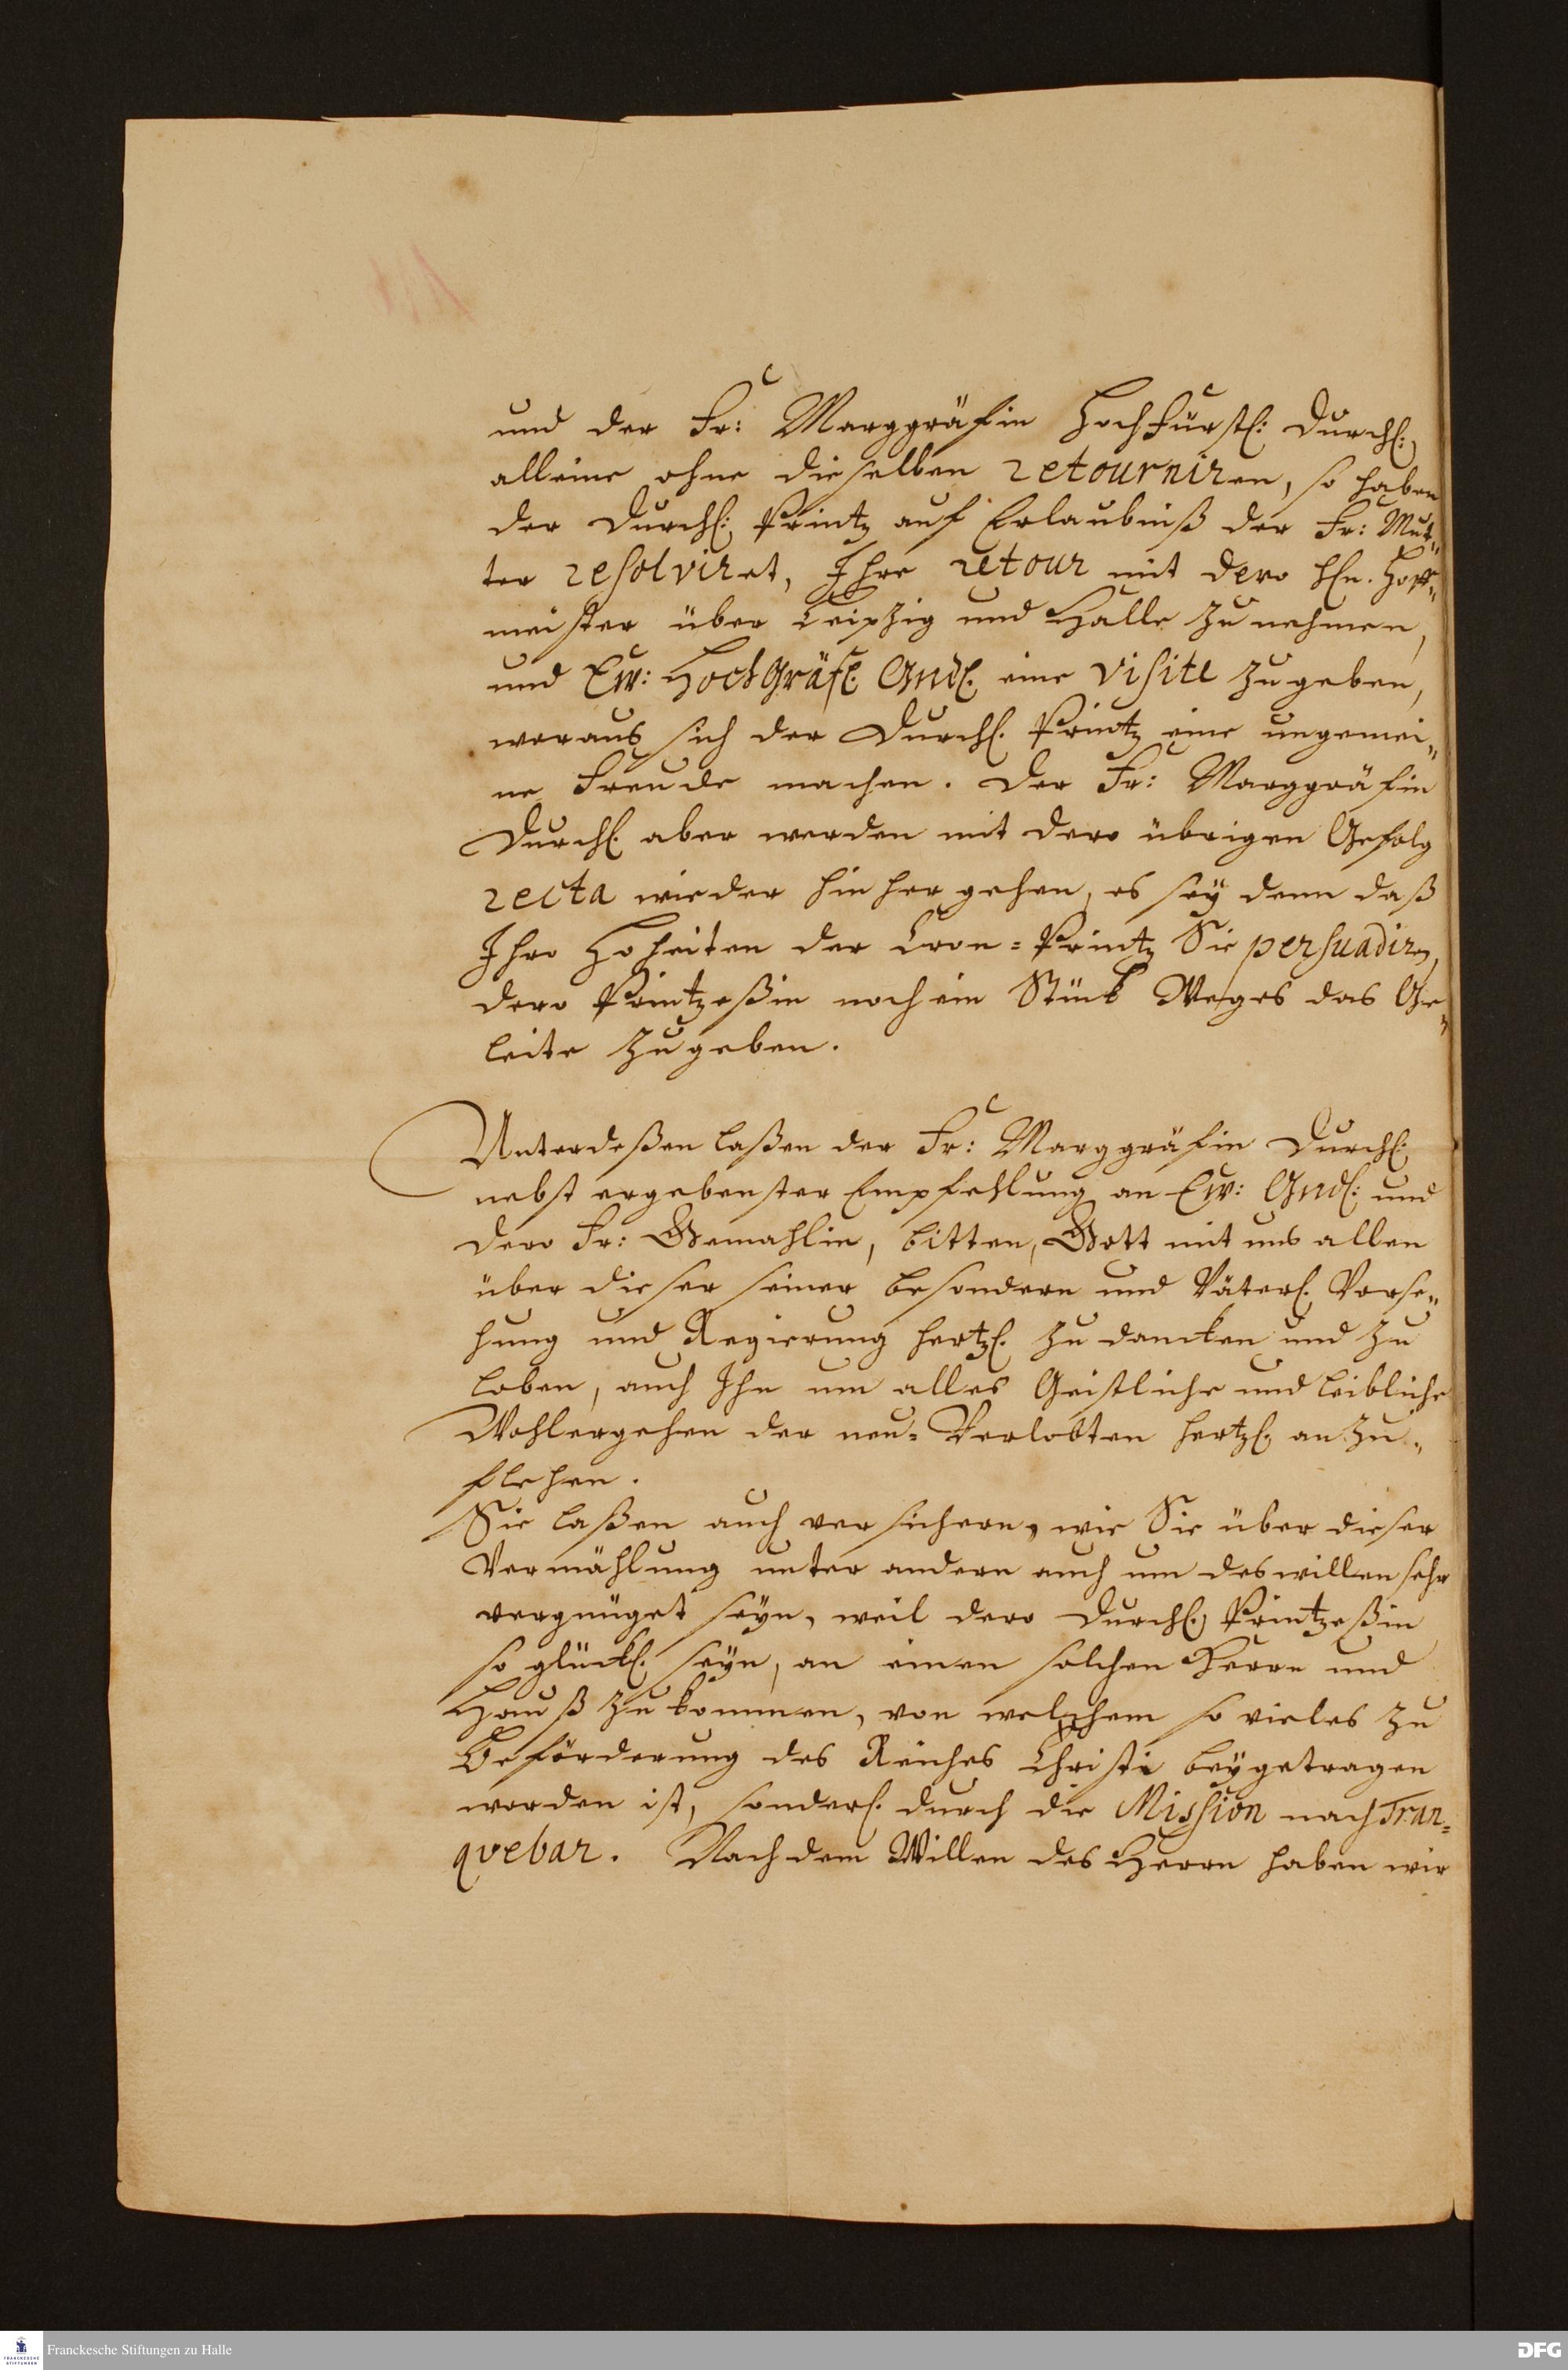 und der Fr: Marggräfin Hochfürstl: Durchl:
alleine ohne dieselben retourniren, so haben
der Durchl: Printz auf Erlaubniß der Fr: Mut„
ter resolviret, Ihre retour mit dero Hln. Hoff„
meister über Leipzig und Halle zu nehmen,
und Ew: HochGräfl. Gndl. eine Visite zu geben,
woraus sich der Durchl. Printz eine ungemei„
ne Freude machen. Der Fr: Marggräfin
Durchl. aber werden mit dero übrigen Gefolg
recta wieder hin her gehen, es seÿ denn daß
Ihro Hoheiten der Cron=Printz Sie persuadiren,
dero Printzeßin noch ein Stück Weges das Ge„
leite zu geben.
Unterdeßen laßen der Fr: Marggräfin Durchl:
nebst ergebenster Empfehlung an Ew: Gndl: und
dero Fr: Gemahlin, bitten, Gott mit uns allen
über dieser seiner besondern und Väterl. Vorse„
hung und Regierung hertzl. zu dancken und zu
loben, auch Ihn um alles Geistliche und leibliche
Wohlergehen der neu=Verlobten hertzl. an zu„
flehen.
Sie laßen auch versichern, wie Sie über dieser
Vermählung unter andern auch um des willen sehr
vergnüget seÿn, weil dero Durchl. Printzeßin
so glückl. seÿn, an einen solchen Herrn und
Hauß zu kommen, von welchem so vieles zu
Beförderung des Reiches Christi beÿgetragen
worden ist, sonderl. durch die Mission nach Tran=
qvebar. Nach dem Willen des Herrn haben wir
Franckesche Stiftungen zu Halle
FRANCKESCHE STIFTUNGEN
DFG